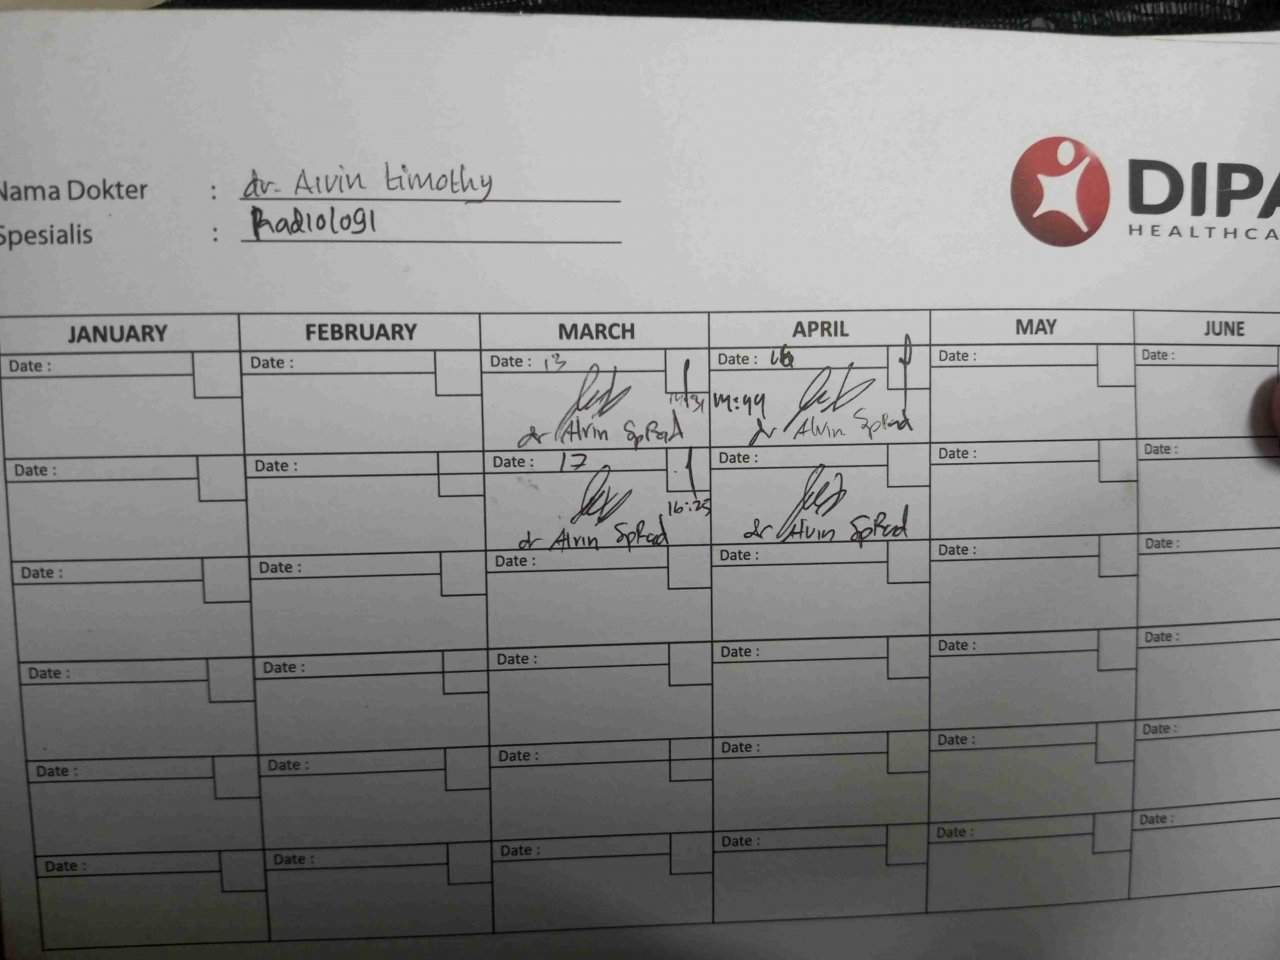 Nama Dokter : dr. Alvin timothy
Spesialis : Radiologi
DIPA
HEALTHCA
JANUARY FEBRUARY MARCH APRIL MAY JUNE
Date : Date : Date : 13 Date : 16 Date : Date :
14:44
dr Alvin SpRad dr Alvin SpRad
Date : Date : Date : 17 Date : Date : Date :
16:25
dr Alvin SpRad dr Alvin SpRad
Date : Date : Date : Date : Date : Date :
Date : Date : Date : Date : Date : Date :
Date : Date : Date : Date : Date : Date :
Date : Date : Date : Date : Date : Date :